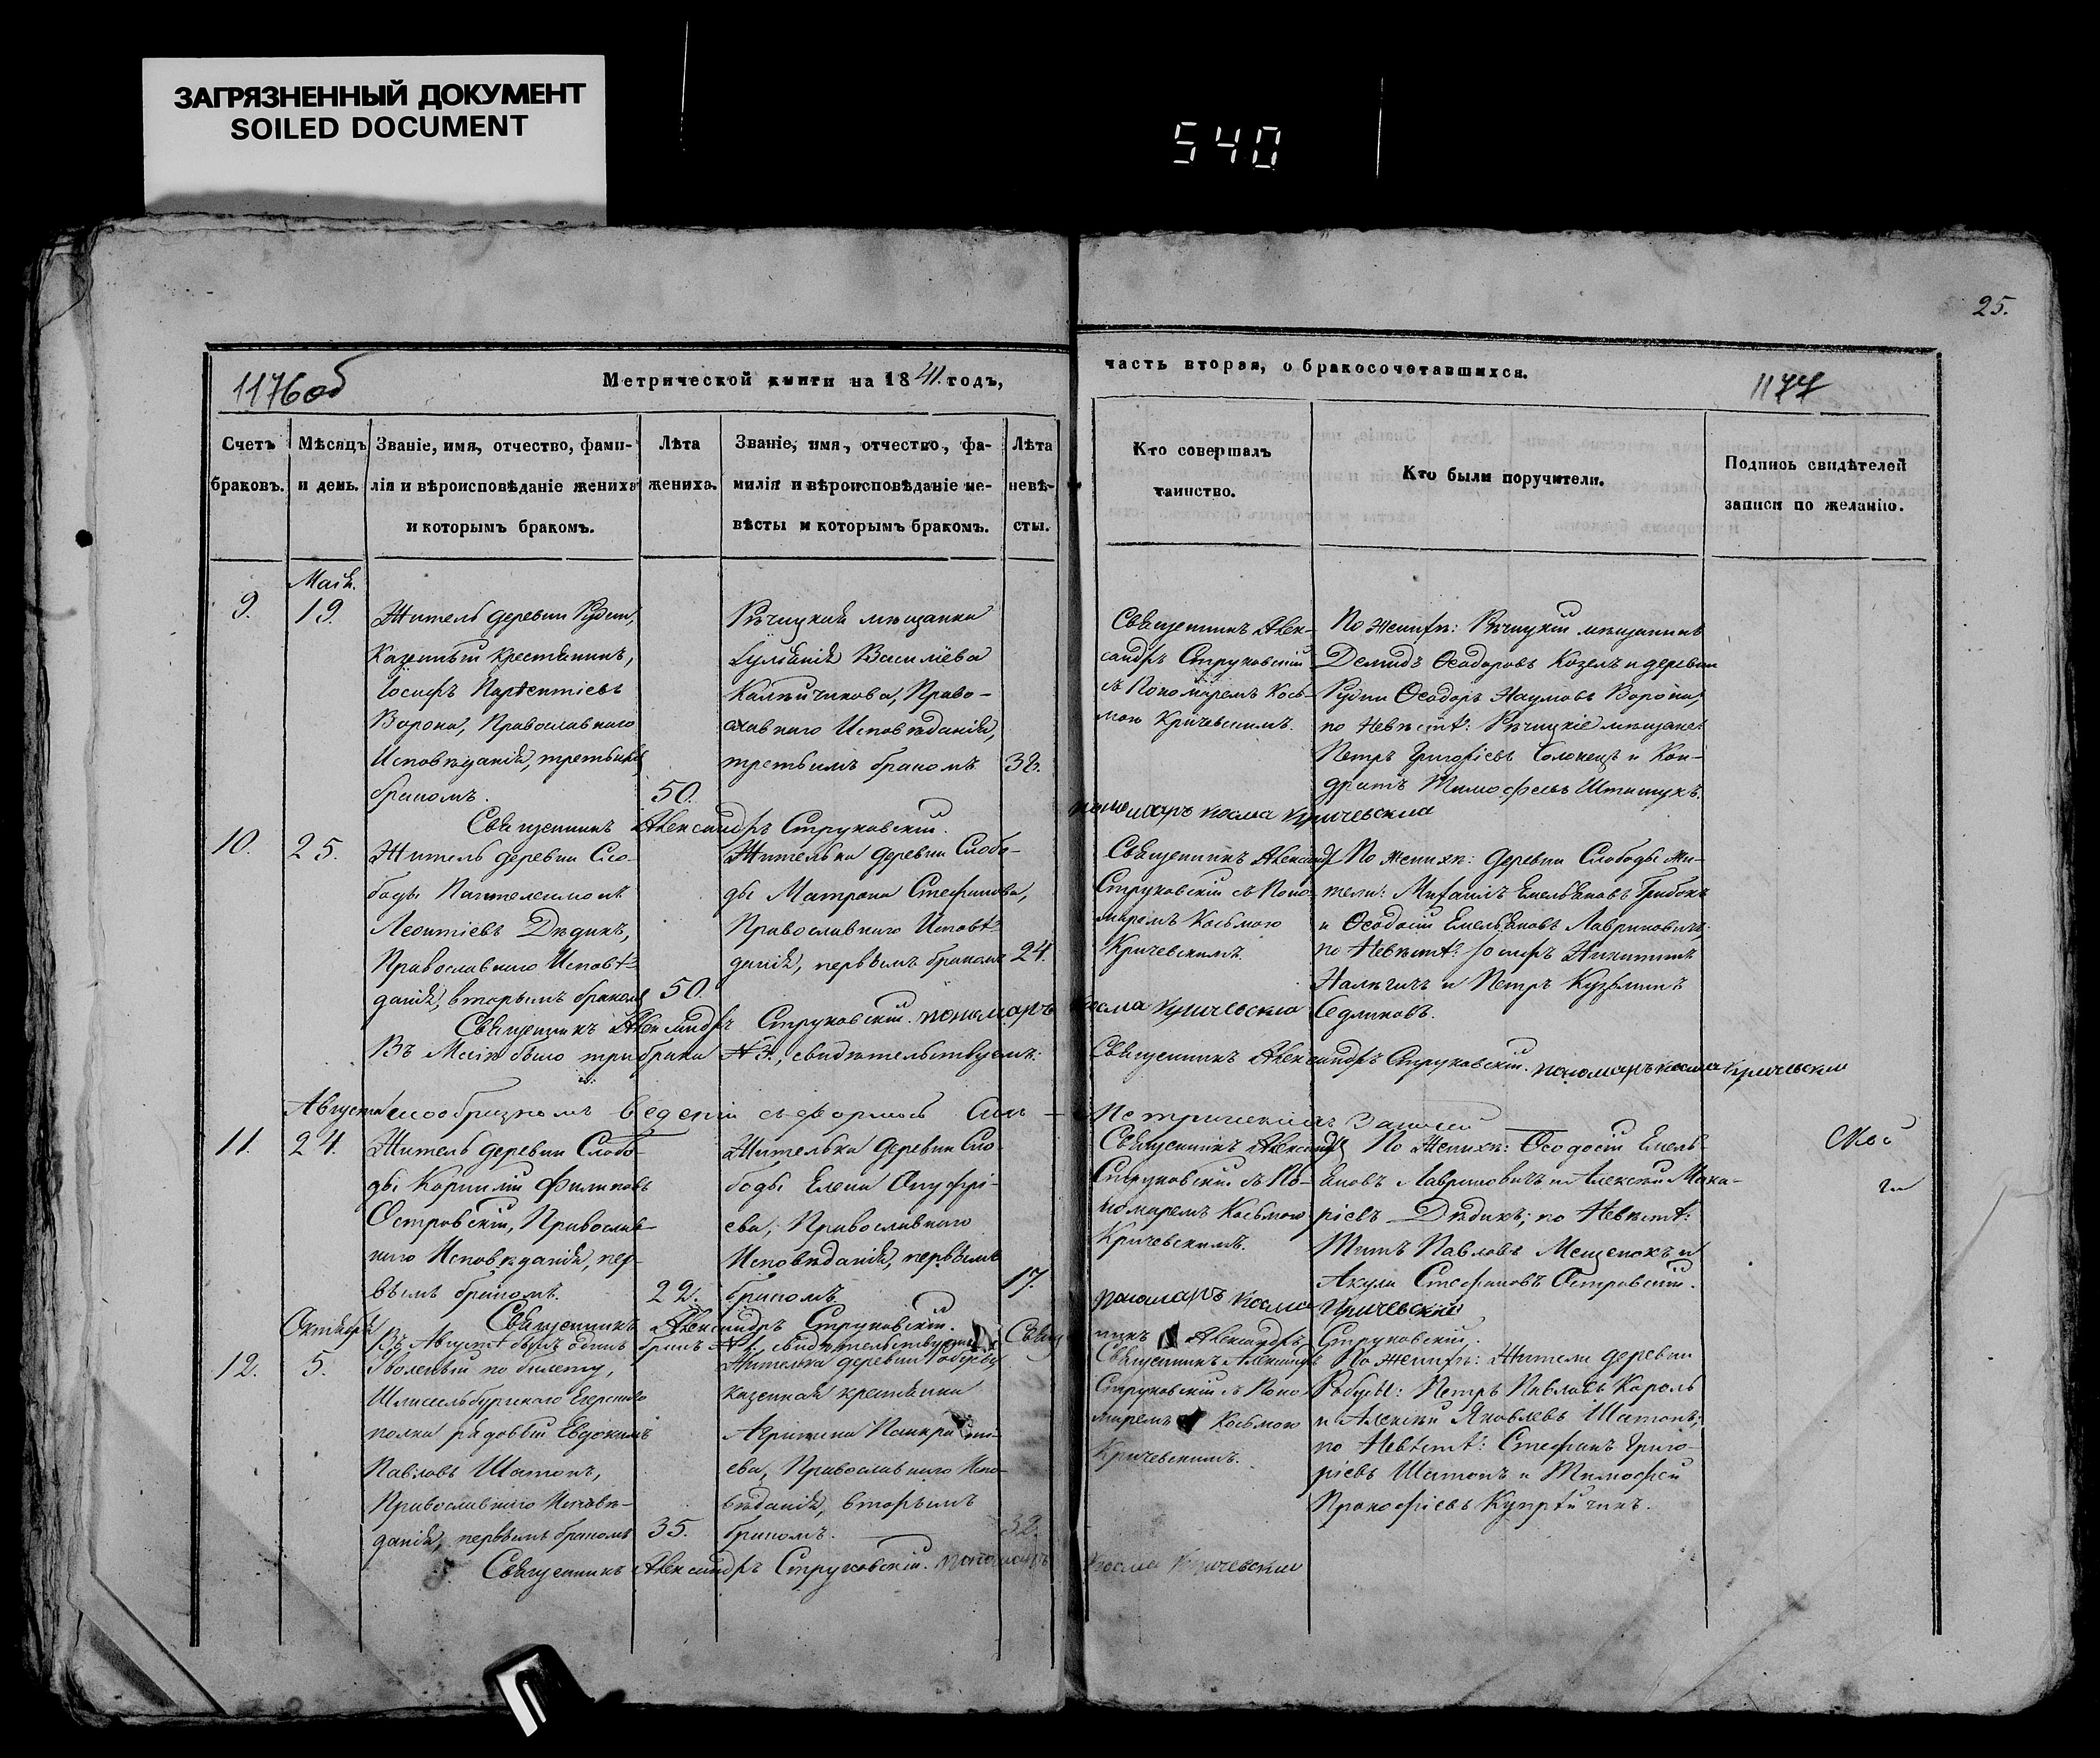 ЗАГРЯЗНЕННЫЙ ДОКУМЕНТ
SOILED DOCUMENT
540
25.
1176об
Метрической книги на 1841. годъ,
часть вторая, о бракосочетавшихся.
1177
Счетъ браковъ.
Мѣсяцъ и день.
Званіе, имя, отчество, фами-
лія и вѣроисповѣданіе жениха
и которымъ бракомъ.
Лѣта жениха.
Званіе, имя, отчество, фа-
милія и вѣроисповѣданіе не-
вѣсты и которымъ бракомъ.
Лѣта невѣ-
сты.
Кто совершалъ
таинство.
Кто были поручители.
Подпись свидѣтелей
записи по желанію.
9.
Маія.
19.
Житель деревни Рудни,
Казенный крестьянинъ,
Іосифъ Парѳентіевъ
Ворона, Православнаго
Исповѣданія, третьимъ
бракомъ.
50.
Рѣчицкая мѣщанка
Іуліанія Васильева
Православнаго Исповѣданія,
третьимъ бракомъ
38.
Священникъ Алек-
сандръ Струковскій
съ Пономаремъ Кось-
мою Кричевскимъ.
По Женихѣ: Рѣчицкій мѣщанинъ
Демидъ Ѳеодоровъ Козелъ и деревни
Рудни Ѳеодоръ Наумовъ Ворона,
по Невѣстѣ: Рѣчицкіе мѣщане:
Петръ Григорьевъ Солонецъ и Кон-
дратъ Тимофеевъ
Священникъ Александръ Струковскій.
пономаръ Косма Кричевский
10.
25.
Житель деревни Сло-
боды Пантелеимонъ
Леонтіевъ Дѣдикъ,
Православнаго Исповѣ-
данія, вторымъ бракомъ
50.
Жителька деревни Слобо-
ды Матрона Стефанова,
Православнаго Исповѣ-
данія, первымъ бракомъ
24.
Священникъ Александръ
Струковскій съ Поно-
маремъ Косьмою
Кричевскимъ.
По женихѣ: деревни Слободы жи-
тели: Михаилъ Емельяновъ Грибокъ
и Ѳеодосій Емельяновъ Лавриновичъ,
по Невѣстѣ: Іосифъ Никитинъ
и Петръ Кузьминъ
Седляковъ.
Священникъ Александръ Струковскій. пономаръ Косма Кричевский
Въ Маіѣ было три брака № 3., свидѣтельствуемъ:
Священникъ Александръ Струковскій. пономаръ Косма Кричевский
Августа
11.
24.
Житель деревни Слобо-
ды Корнилій Филиповъ
Островскій, Православ-
наго Исповѣданія, пер-
вымъ бракомъ.
22.
Жителька деревни Сло-
боды Елена Онуфрі-
ева, Православнаго
Исповѣданія, первымъ
бракомъ.
17.
Священникъ Александръ
Струковскій съ По-
номаремъ Косьмою
Кричевскимъ.
По Женихѣ: Ѳеодосій Емель-
яновъ Лавриновичъ и Алексѣй Мака-
ріевъ Дѣдикъ; по Невѣстѣ:
Титъ Павловъ Мещенокъ и
Акула Стефановъ Островскій.
Священникъ Александръ Струковскій.
пономаръ Косма Кричевский
Въ Августѣ былъ одинъ бракъ № 1. свидѣтельствуемъ
Священникъ Александръ Струковскій.
Октября
12.
5.
Уволенный по билету,
Шлиссельбургскаго Егерскаго
полка рядовый Евдокимъ
Павловъ Шатокъ,
Православнаго Исповѣ-
данія, первымъ бракомъ
35.
Жителька деревни Робусы
казенная крестьянка
Агрипина Панкрати-
ева, Православнаго Испо-
вѣданія, вторымъ
бракомъ.
32.
Священникъ Александръ
Струковскій съ Поно-
маремъ Косьмою
Кричевскимъ.
По женихѣ: Жители деревни
Робусы: Петръ Павловъ Король
и Алексѣй Яковлевъ Шатокъ;
по Невѣстѣ: Стефанъ Григо-
ріевъ Шатокъ и Тимофей
Прокофіевъ Купрѣйчикъ.
Священникъ Александръ Струковскій. пономаръ
Косма Кричевский